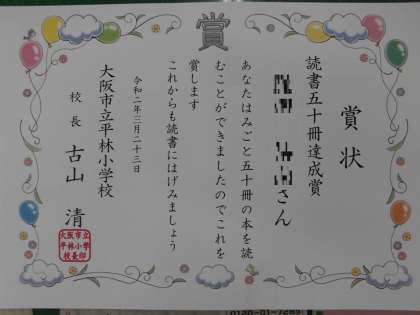 賞
賞状
読書五十冊達成賞
さん
あなたはみごと五十冊の本を読
むことができましたのでこれを
賞します
これからも読書にはげみましょう
令和二年三月二十三日
大阪市立平林小学校
校長 古山 清
大阪市立
平林小学
校長印
0120-01-7285